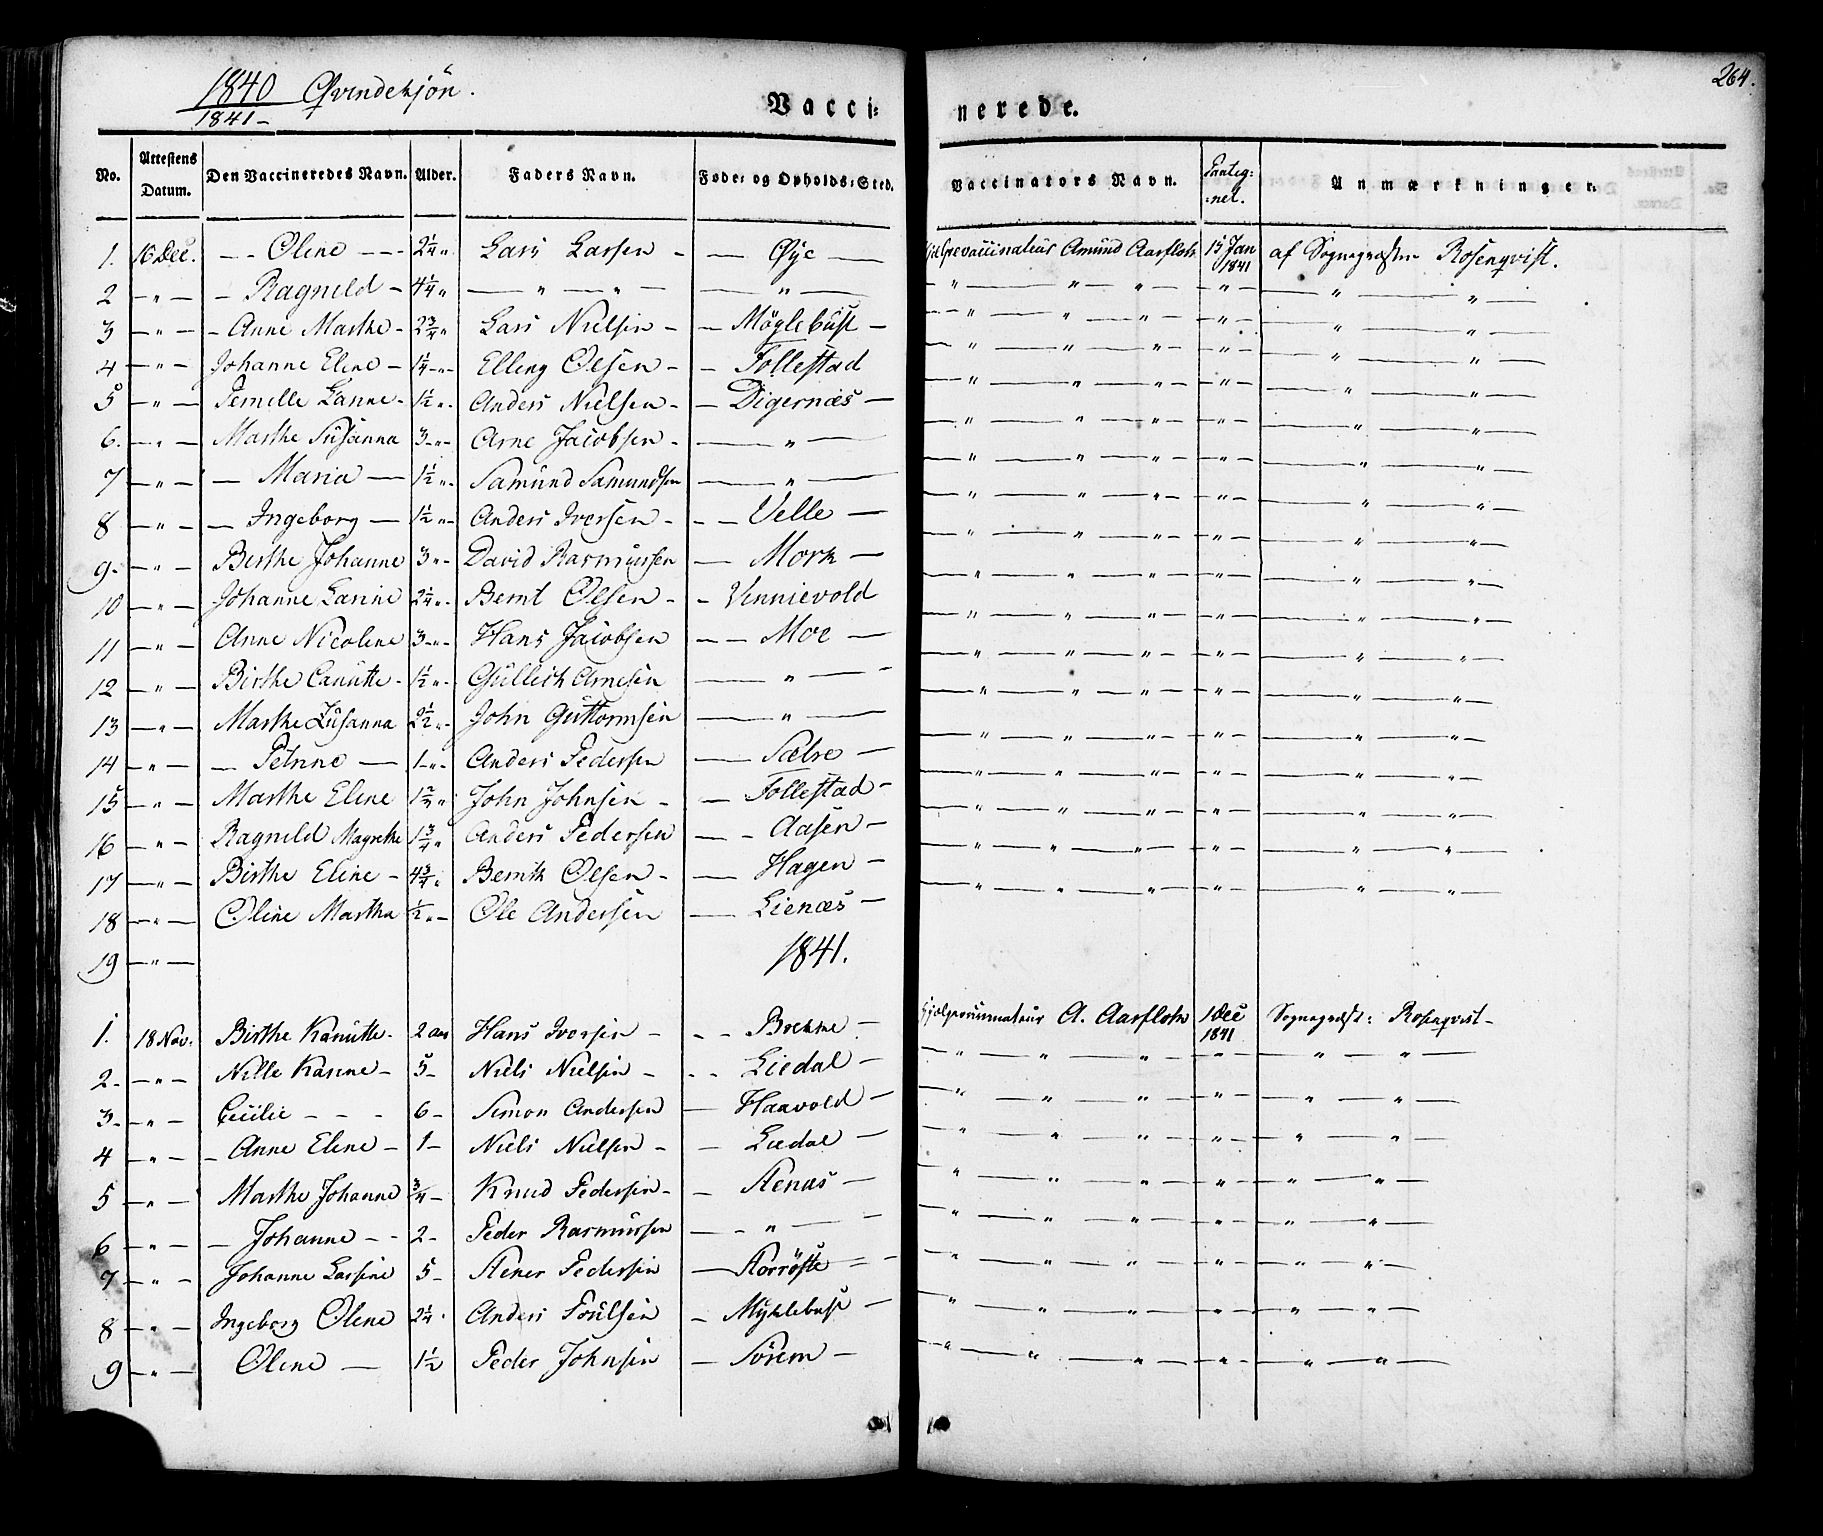 264.
1840 Qvindekjön.
1841 -
Vacci: nerede.
No. Attestens Datum. Den Vaccineredes Navn. Alder. Faders Navn. Føde: og Opholds:Sted. Vaccinators Navn. Anmærkninger.
1. 16 Dec. - - Olene - - - 2 1/4 " Lars Larsen - — Øye — Hjelpevaccinateur Amund Aarfloth 15 Jan 1841 af Sognepræsten Rosenqvist.
2 — " — - Ragnild - 4 1/4 " — " — " — — " — - " — " — " — - " - — " — " —
3 — " — - Anne Marthe - 2 3/4 " Lars Nielsen - — Möglebüst — - " — " — " — - " - — " — " —
4 — " — Johanne Elene - 1 1/4 - " - Elling Olsen - - Follestad - " — " — " — - " - — " — " —
5 — " — Pernille Hanne - 1 1/2 " - Anders Nielsen - — Digernæs — - " — " — " — - " - — " — " —
6. — " — Marthe Susanna 3 - " - Arne Jacobsen - — " — - " — " — " — - " - — " — " —
7 — " — — Maria — 1 1/2 " - Samund Samundsen — " — - " — " — " — - " - — " — " —
8 — " — — Ingeborg — 1 1/2 " - Anders Iversen - - — Velle — - " — " — " — - " - — " — " —
9 - — " — Berthe Johanne 3 " - David Rasmussen — Mork — - " — " — " — - " - — " — " —
10 — " — Johanne Larine 2 1/4 " - Bernt Olsen - - Vinnievold - " — " — " — - " - — " — " —
11 — " — Anne Nicoline 3 - " - Hans Jacobsen — — Moe — - " — " — " — - " - — " — " —
12 — " — Birthe Canutte - 1 1/2 " - Gullich Arnesen — " — - " — " — " — - " - — " — " —
13 — " — Marthe Susanna 2 1/2 " - John Guttormsen — " — - " — " — " — - " - — " — " —
14 — " — — Petrine — 1 - " - Anders Pedersen — Sætre — - " — " — " — - " - — " — " —
15 — " — Marthe Elene John Johnsen - — Follestad - - " — " — " — - " - — " — " —
16 — " — Ragnild Magrethe 1 3/4 " Anders Pedersen — - Aasen — - " — " — " — - " - — " — " —
17 — " — Birthe Eline - 4 3/4 " Bernth Olsen - — Hagen — - " — " — " — - " - — " — " —
18 — " — Oline Martha 1/2 " - Ole Andersen — Lienæs — - " — " — " — - " - — " — " —
19 — " —
1841.
1. 18 Nov. Birthe Kanutte - 2 aar Hans Iversen - - - Brekke — Hjælpevaccinateur A. Aarfloth 1 Dec 1841 Sognepræst: Rosenqvist -
2 - — " — Nille Karine - 5 - Niels Nielsen - - - Liedal — - " — " — " — - " - — " — " —
3 - — " — Cecilie - - - 6 - Simon Andersen — Haavold — - " — " — " — - " - — " — " —
4 — " — - Anne Elene - 1 - Niels Nielsen - — Liedal — - " — " — " — - " - — " — " —
5 — " — Marthe Johanne 3/4 - Knud Pedersen - — Stenæs — - " — " — " — - " - — " — " —
6 — " — - Johanne - - 2 - Peder Rasmussen — - " — - " — " — " — - " - — " — " —
7 — " — Johanne Larsine 5 - Stener Pedersen — - " — " — " — - " - — " — " —
8 — " — Ingeborg Olene 2 1/4 - Anders Poulsen — Myklebust — - " — " — " — - " - — " — " —
9 — " — Olene — 1 1/2 Peder Johnsen — Sörem — - " — " — " — - " - — " — " —